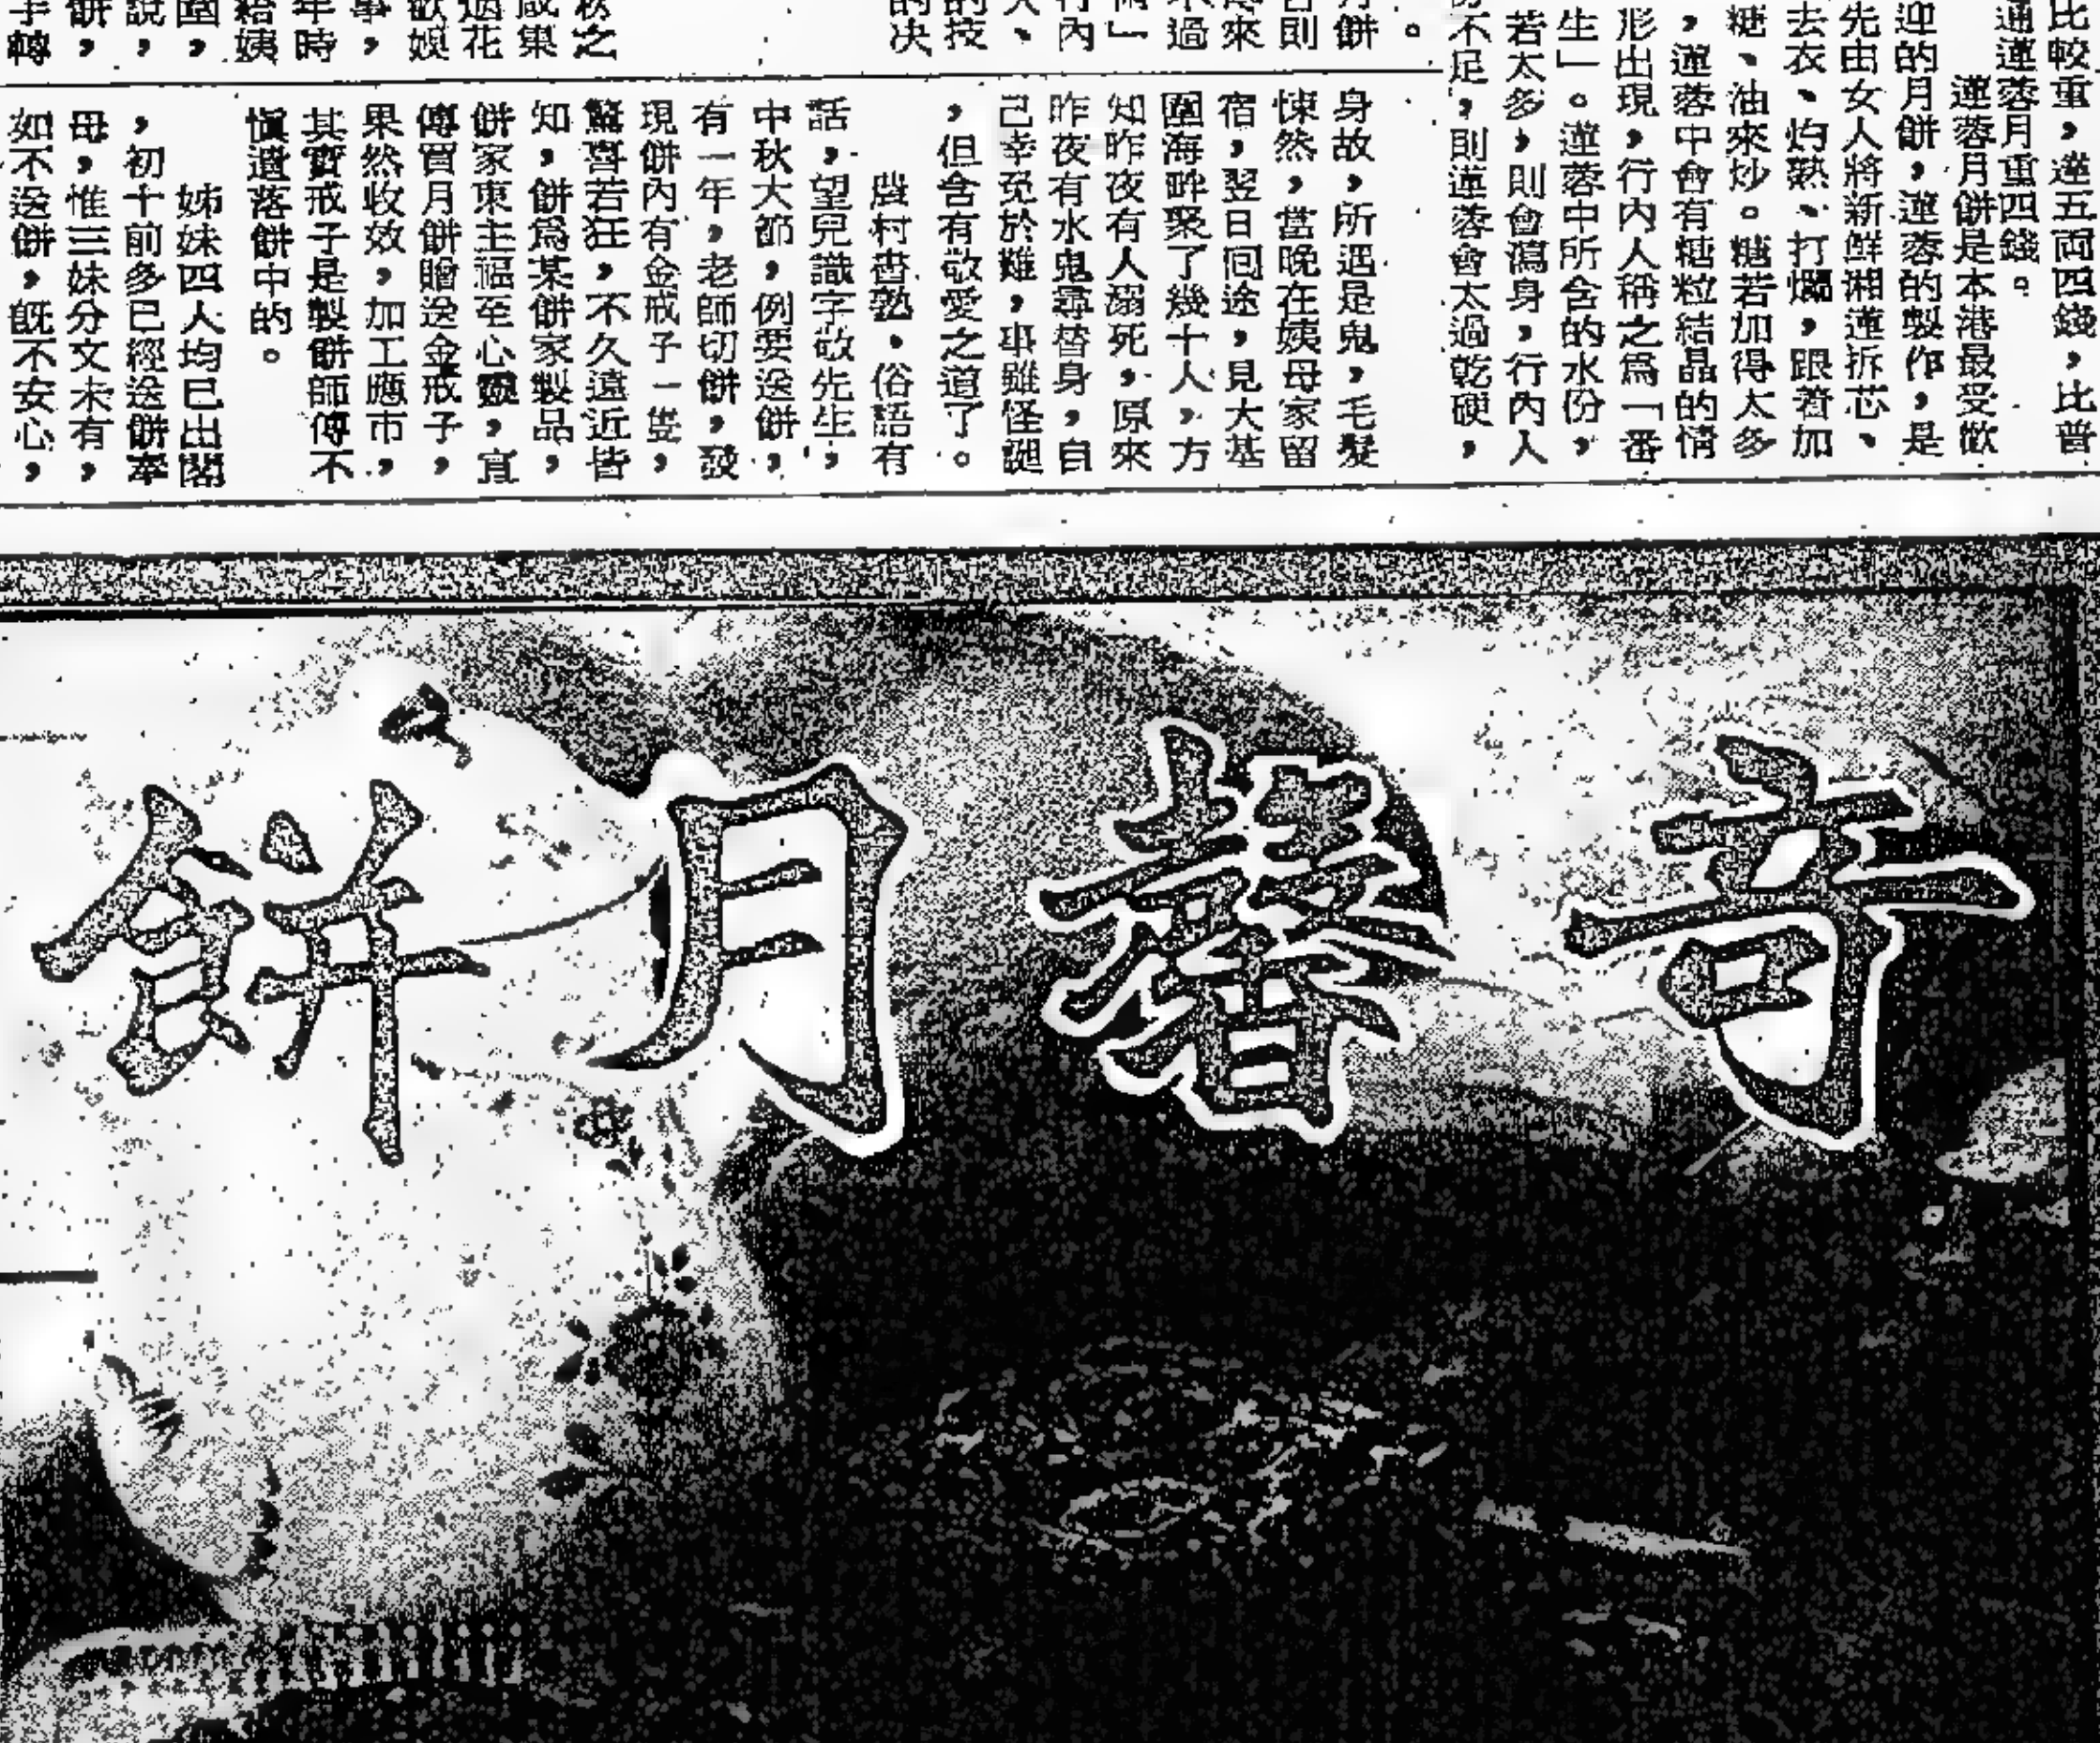 比較重，蓮五両四錢，比普
通蓮蓉月重四錢。
蓮蓉月餅是本港最受歡
迎的月餅，蓮蓉的製作，是
先由女人將新鮮湘蓮拆芯、
去衣、灼熟、打爛，跟着加
糖、油來炒。糖若加得太多
，蓮蓉中會有糖粒結晶的情
形出現，行內人稱之爲「番
生」。蓮蓉中所含的水份，
若太多，則會瀉身，行內人
不足，則蓮蓉會太過乾硬，
。
月餅
則
來
過
」
內
、
的技
的决
之
集
花
娛
事，
年時
給姨
圍，
說，
餅，
手轉
身故，所遇是鬼，毛髮
悚然，當晚在姨母家留
宿，翌日囘途，見大基
圍海畔聚了幾十人，方
知昨夜有人溺死，原來
昨夜有水鬼尋替身，自
己幸免於難，事雖怪誕
，但含有敬愛之道了。
農村書塾，俗語有
話，望兒識字敬先生，
中秋大節，例要送餅，
有一年，老師切餅，發
現餅內有金戒子一隻，
驚喜若狂，不久遠近皆
知，餅爲某餅家製品，
餅家東主福至心靈，宣
傳買月餅贈送金戒子，
果然收效，加工應市，
其實戒子是製餅師傅不
愼遺落餅中的。
姊妹四人均已出閣
，初十前多已經送餅奉
母，惟三妹分文未有，
如不送餅，旣不安心，
奇馨月餅